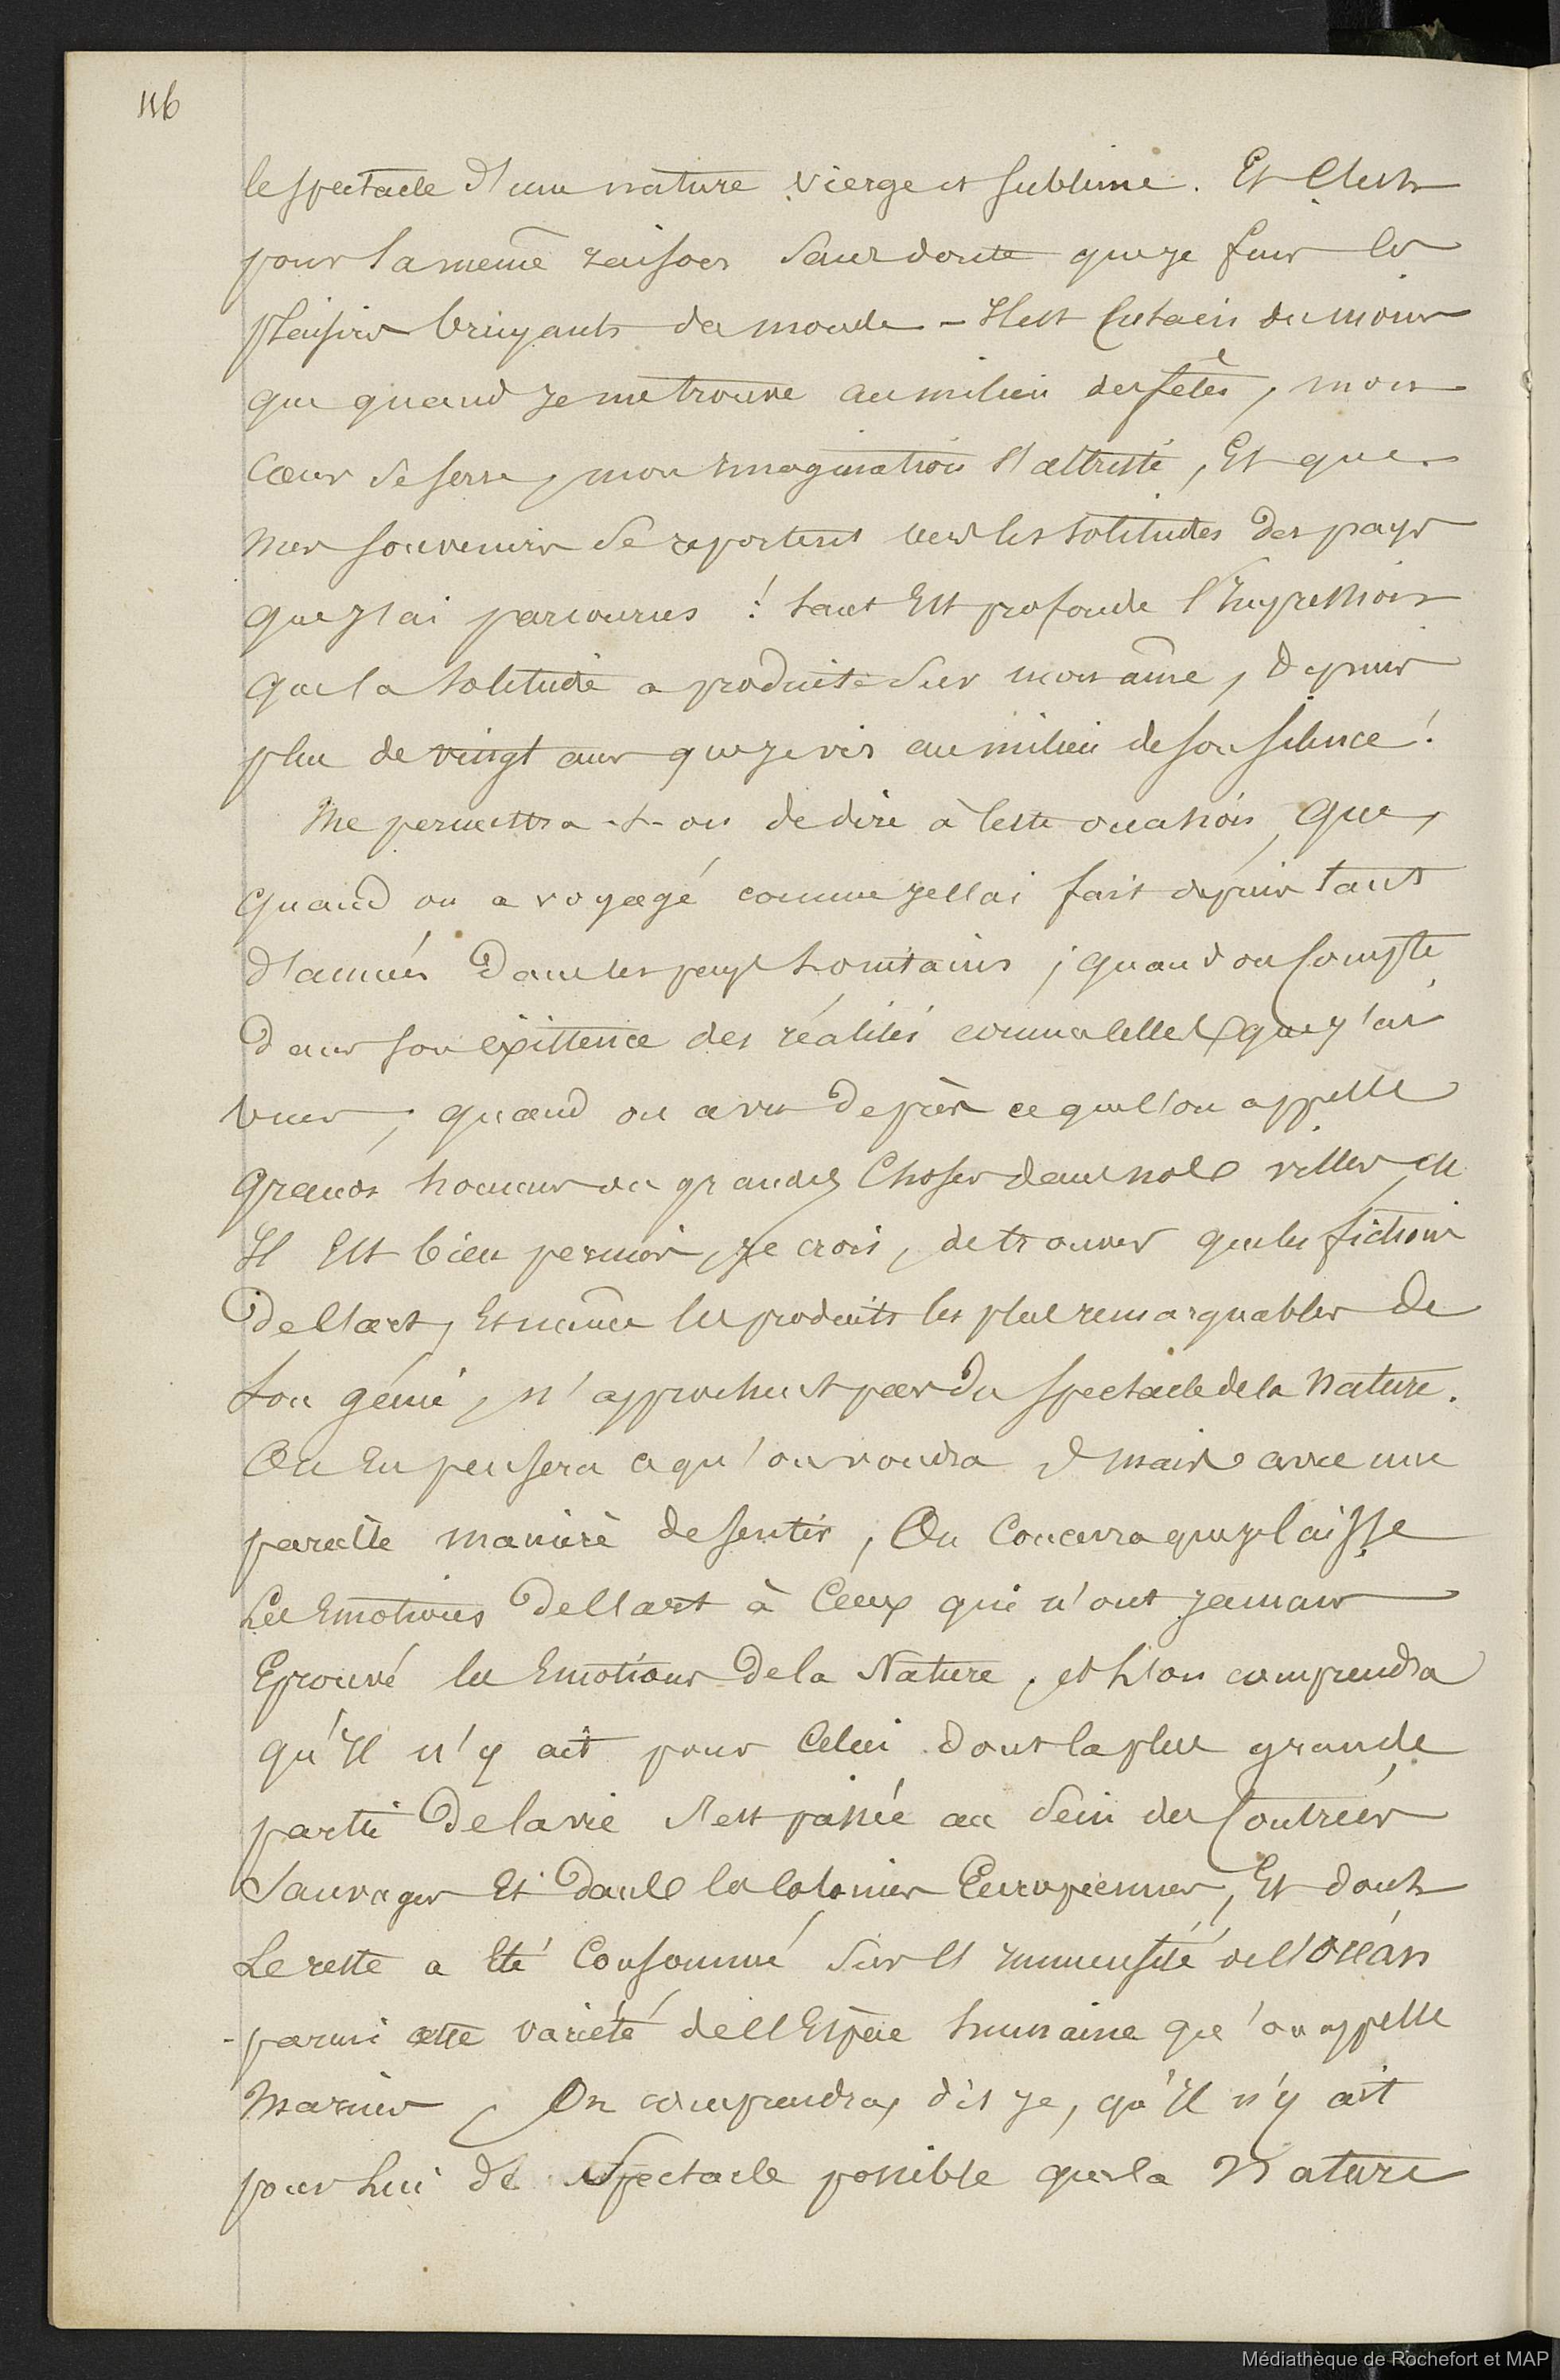 116
le spectacle d'une nature vierge et sublime. Et c'est
pour la même raison sans doute que je fuis les
plaisirs bruyants du monde - Il est certain du moins
que quand je me trouve au milieu des fêtes, mon
cœur se serre, mon imagination s'attriste, Et que
mes souvenirs se reportent vers les solitudes des pays
que j'ai parcourus ! tant Est profonde l'Impression
que la solitude a produite sur mon âme, depuis
plus de vingt ans que je vis au milieu de son silence !
Me permettra-t-on de dire à cette occasion, que,
quand on a voyagé comme je l'ai fait depuis tant
d'années dans les pays lointains ; quand on compte
dans son existence des réalités comme celles que j'ai
vues ; quand on a vu de près ce que l'on appelle
grands hommes ou grandes choses dans nos villes,
Il Est bien permis, je crois, de trouver que les fictions
de l'art, Et même les produits les plus remarquables de
son génie, n'approchent pas du spectacle de la Nature.
On En pensera ce qu'on voudra mais avec une
pareille manière de sentir, On concevra que je laisse
Les Emotions de l'art à ceux qui n'ont jamais
Eprouvé les Emotions de la Nature, et l'on comprendra
qu'Il n'y ait pour celui dont la plus grande
partie de la vie s'est passée au sein des contrées
sauvages Et dans les colonies Européennes, Et dont
Le reste a Eté consommé sur l'immensité de l'Océan
parmi cette variété de l'Espèce humaine qu'on appelle
Marins, On comprendra, dis je, qu'Il n'y ait
pour Lui de Spectacle possible que la Nature
Médiathèque de Rochefort et MAP